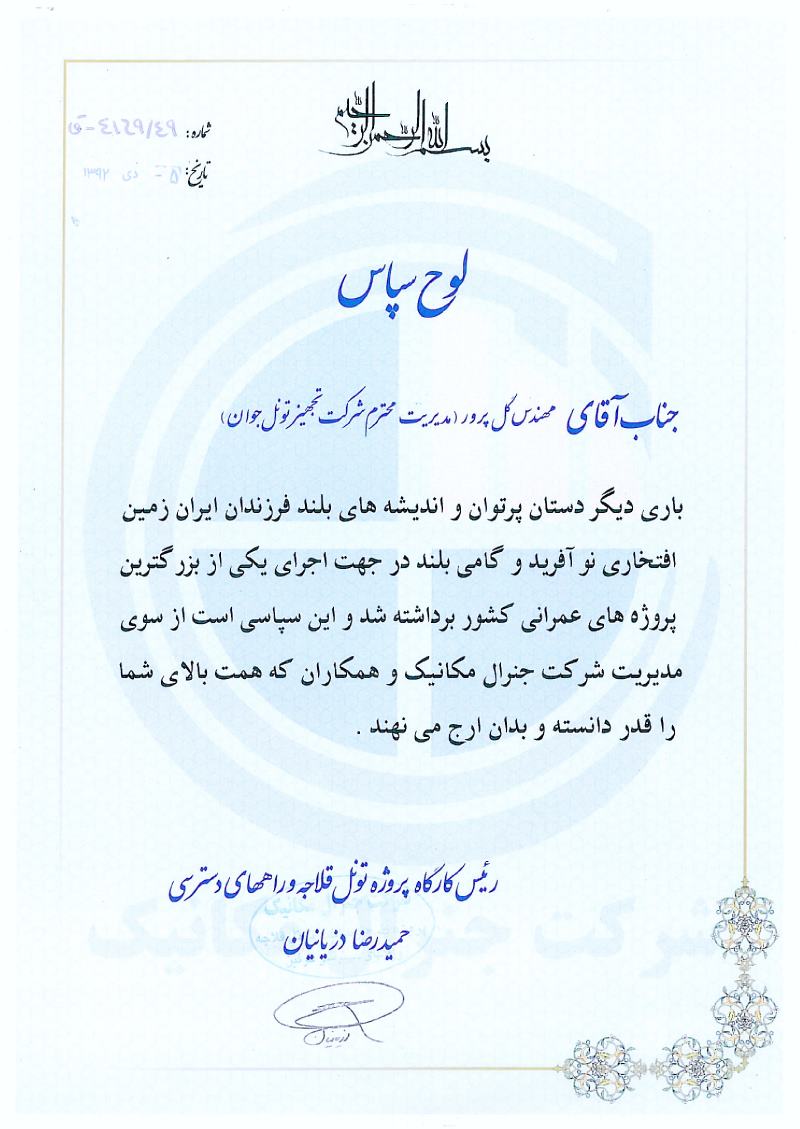 بسم الله الرحمن الرحیم
شماره: ٤١٤٩/٤٩-ق
تاریخ: ۵- دی ۱۳۹۲
لوح سپاس
جناب آقای مهندس گل پرور (مدیریت محترم شرکت تجهیز تونل جوان)
باری دیگر دستان پرتوان و اندیشه های بلند فرزندان ایران زمین
افتخاری نو آفرید و گامی بلند در جهت اجرای یکی از بزرگترین
پروژه های عمرانی کشور برداشته شد و این سپاسی است از سوی
مدیریت شرکت جنرال مکانیک و همکاران که همت بالای شما
را قدر دانسته و بدان ارج می نهند .
رئیس کارگاه پروژه تونل قلاجه و راههای دسترسی
حمیدرضا دزیانیان
شرکت جنرال مکانیک